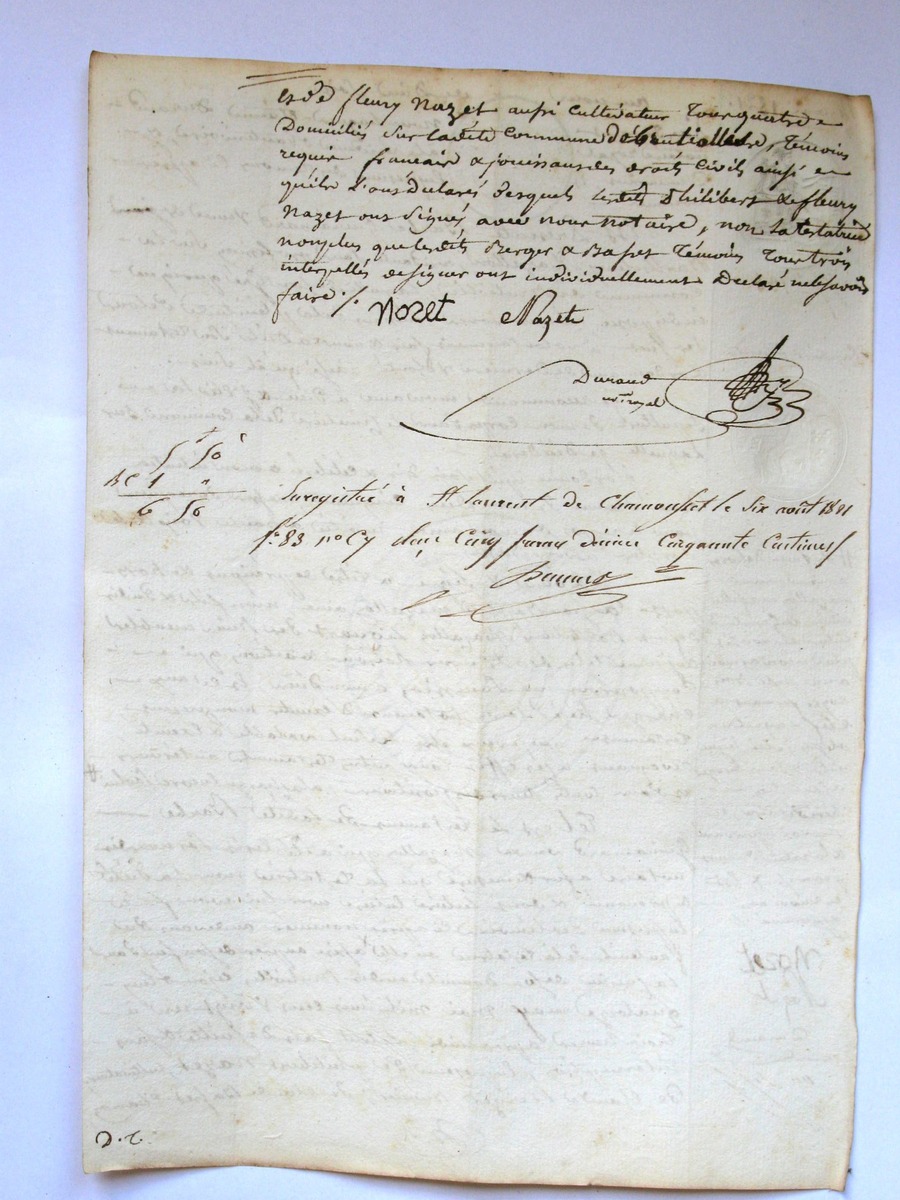 et de fleury Nazet aussi cultivateur Tous quatre
Domiciliés sur ladite commune de Témoins
requis francais & jouissans des droits civils ainsi
qu'ils l'ons Déclarés desquels lesdits Philibert & fleury
Nazet ons signés avec nous notaire, non la testatrice
nonplus que lesdits Berger & Basset Témoins Tous trois
interpellés de signer ont individuellement Déclaré ne le savoir
faire ./.
Nozet Nazet
Durand
nre royal
5f 50c
1 "
6 50
Enregistré à St laurent de Chamousset le six août 1821
fo 83 Ro Cy Reçu Cinq francs décime Cinquante Centimes
D. t.